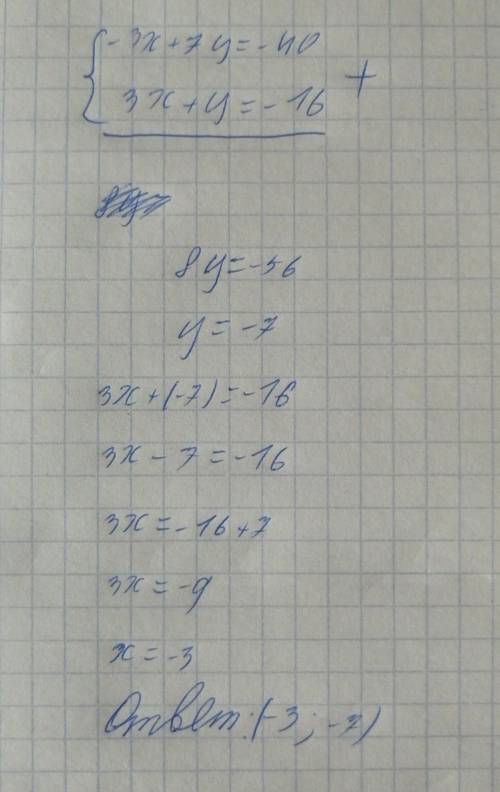 -3x+7y=-40
3x+y=-16 +
8y=-56
y=-7
3x+(-7)=-16
3x-7=-16
3x=-16+7
3x=-9
x=-3
Ответ: (-3; -7)